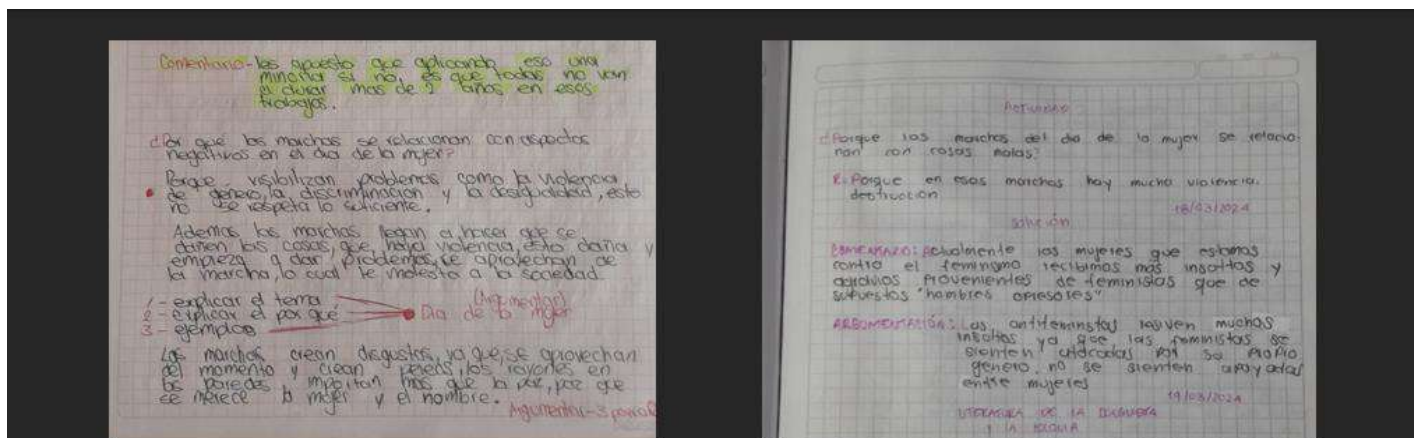 Comentario-les apuesto que aplicando eso una
minoria si no, es que todas no van
a durar mas de 2 años en esos
trabajos.
¿Por qué las marchas se relacionan con aspectos
negativos en el dia de la mujer?
Porque visibilizan problemas como la violencia
de genero, la discriminacion y la desigualdad, esto
no se respeta lo suficiente.
Ademas las marchas llegan a hacer que se
dañen las cosas, que haya violencia, esto daña y
empieza a dar problemas, se aprovechan de
la marcha, lo cual le molesta a la sociedad.
1-explicar el tema
(Argumentar)
2-explicar el por qué
Dia de la mujer
3-ejemplos
Las marchas crean disgustos, ya que, se aprovechan
del momento y crean peleas, los rayones en
las paredes importan mas que la paz, paz que
se merece la mujer y el hombre.
Argumentar-3
Actividad
¿Porque las marchas del dia de la mujer se relacio-
nan con cosas malas?
R. Porque en esas marchas hay mucha violencia.
destrucción
18/03/2024
Solución
Actualmente las mujeres que estamos
contra el feminismo recibimos más insultos y
agravios provenientes de feministas que de
supuestos "hombres opresores"
ARGUMENTACIÓN: Las antifeministas muchos
insultos ya que las feministas se
sienten atacadas por su propio
genero, no se sienten apoyadas
entre mujeres
19/03/2024
LITERATURA DE LA
Y LA COLONIA